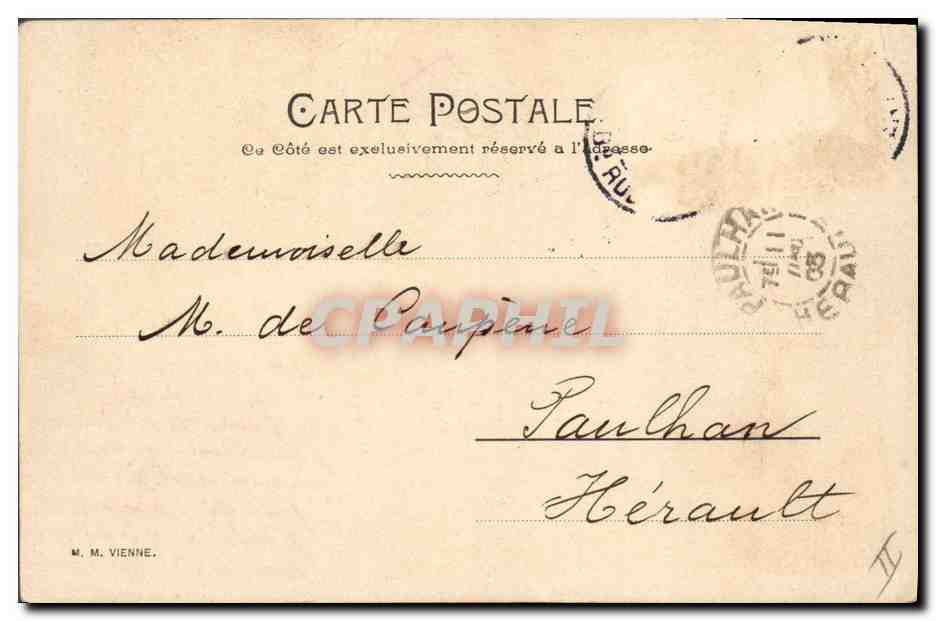 CARTE POSTALE
Ce Côté est exclusivement réservé a l'Adresse
PAULHAN HERAULT
11
03
Mademoiselle
M. de Coupène
CPAPHIL
Paulhan
Hérault
M. M. VIENNE.
II